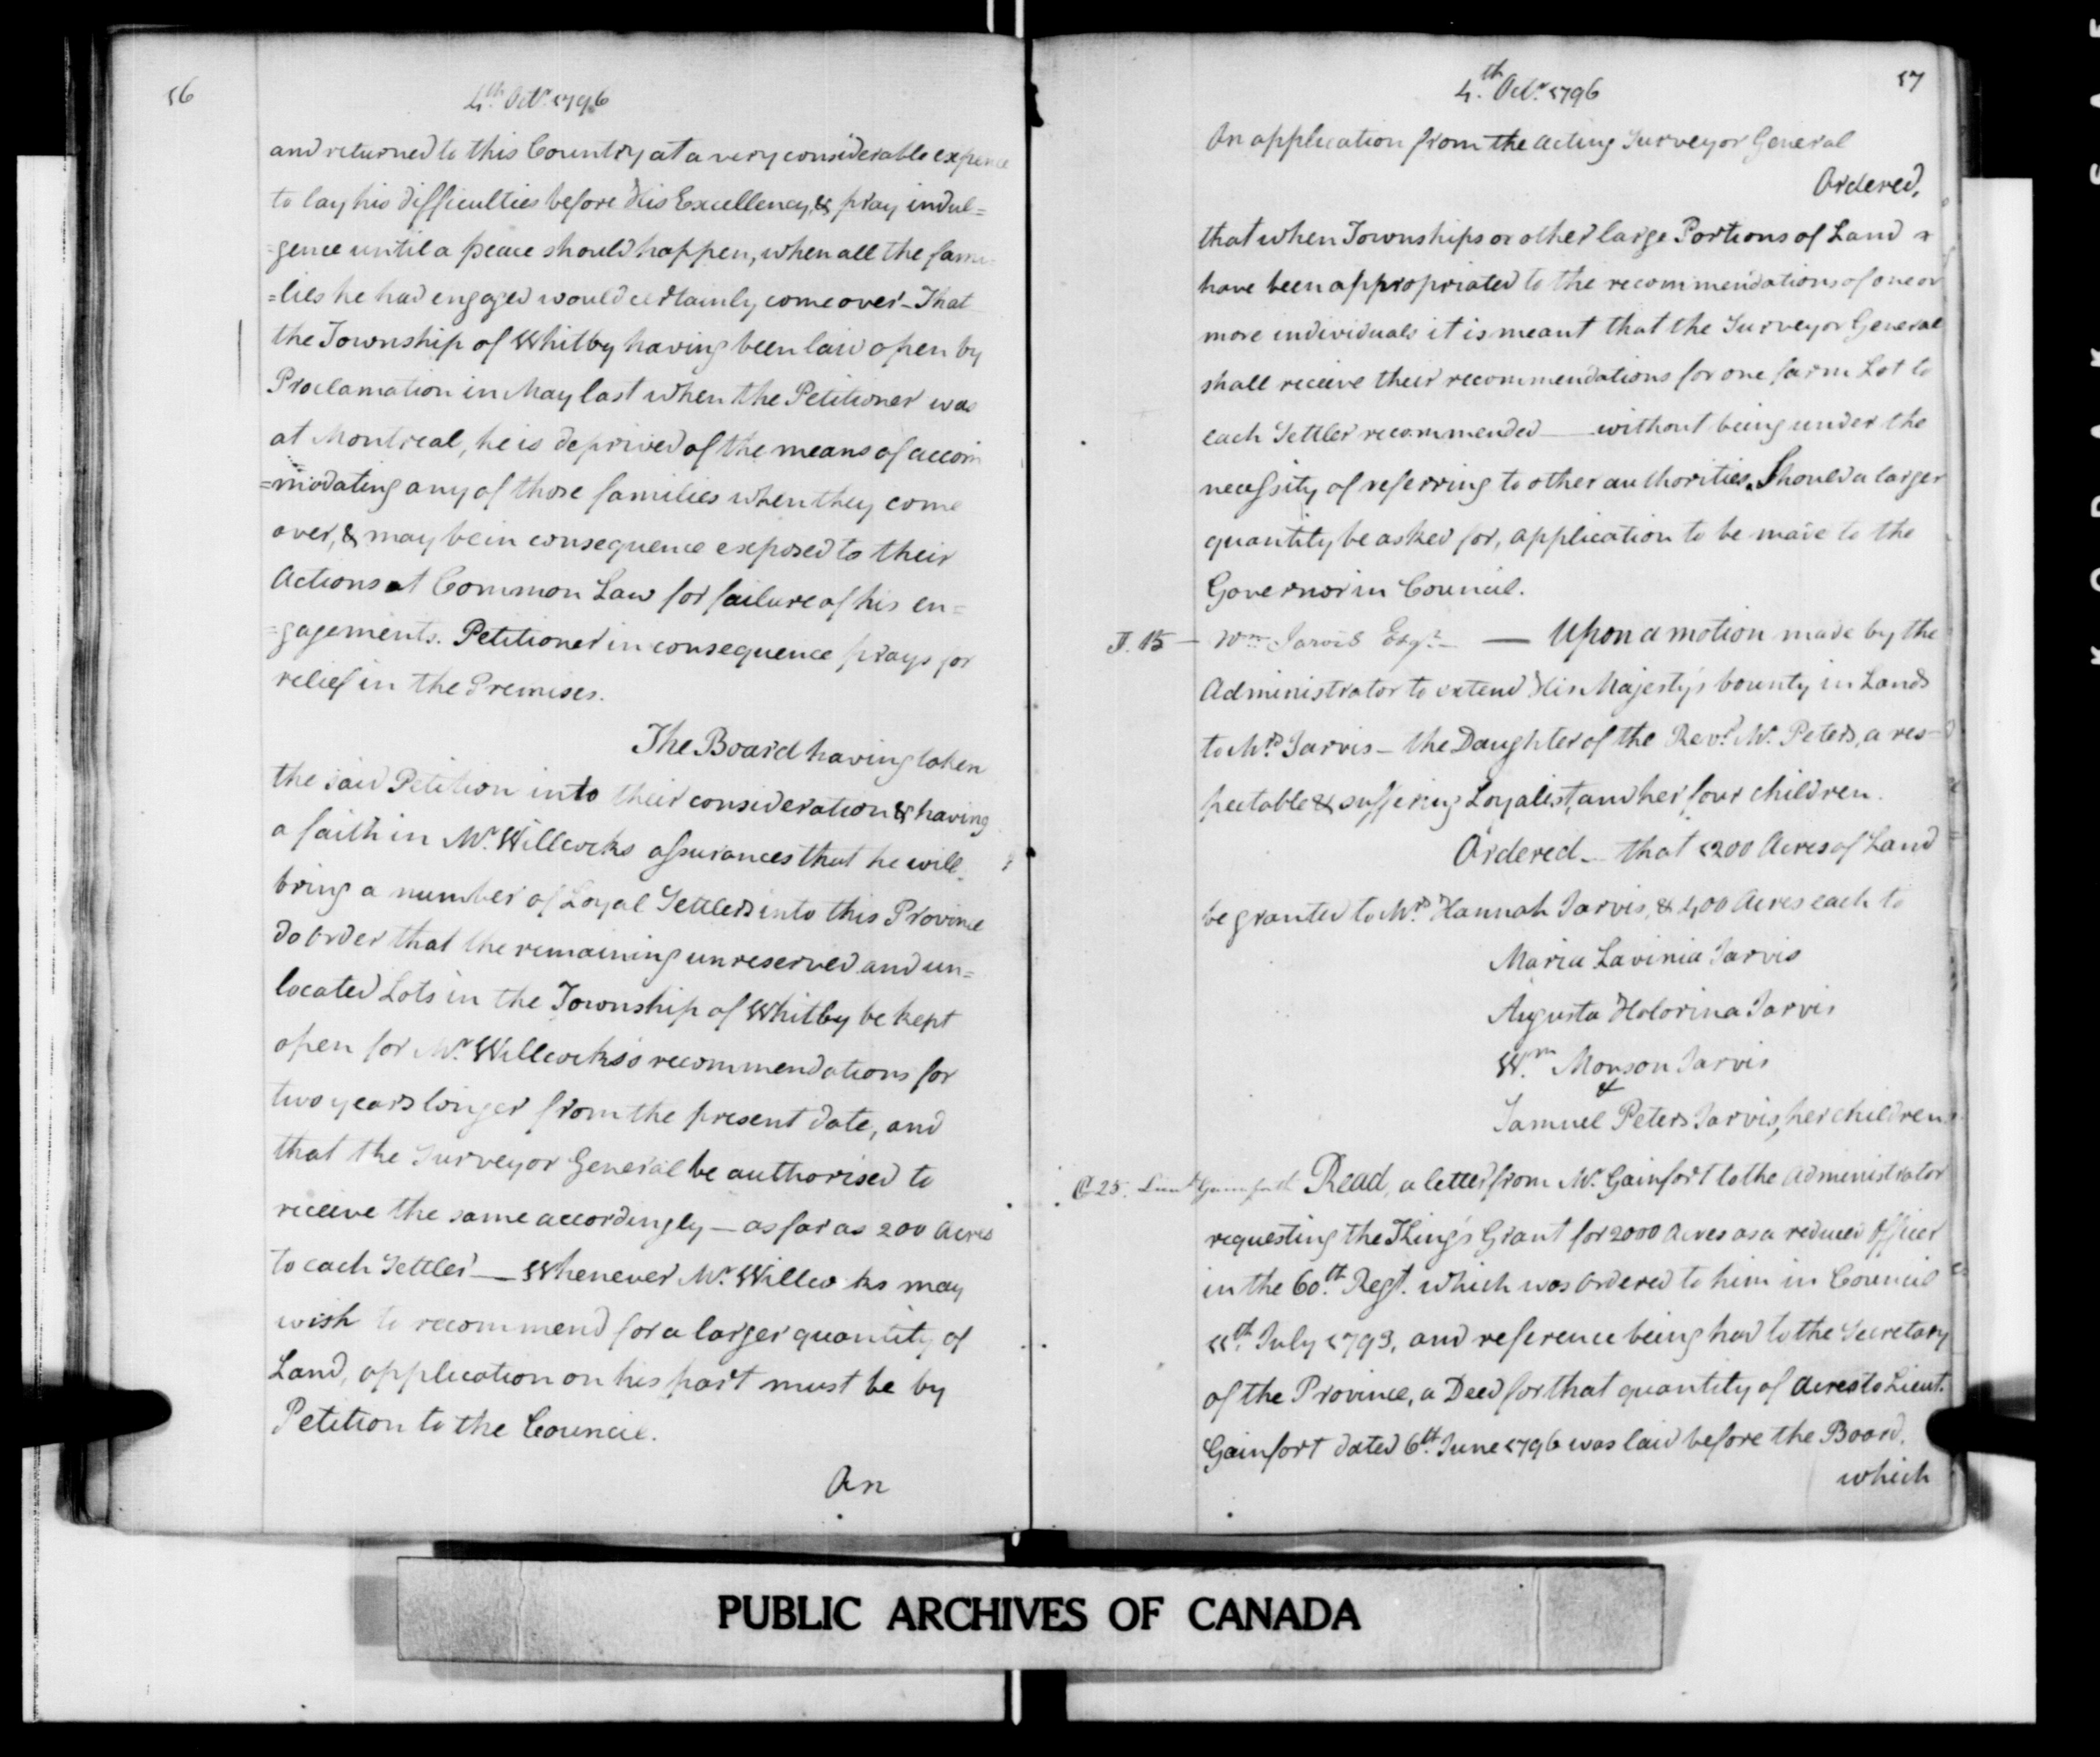 56
4th Octr. 1796
and returned to this Country at a very considerable expence
to lay his difficulties before His Excellency, & pray indul=
=gence until a peace should happen, when all the fami=
=lies he had engaged would certainly come over - That
the Township of Whitby having been laid open by
Proclamation in May last when the Petitioner was
at Montreal, he is deprived of the means of accom
=modating any of those families when they come
over, & may be in consequence exposed to their
Actions at Common Law for failure of his en=
=gagements. Petitioner in consequence prays for
relief in the Premises.
The Board having taken
the said Petition into their consideration & having
a faith in Mr. Willcocks assurances that he will
bring a number of Loyal Settlers into this Province
do order that the remaining unreserved and un=
located Lots in the Township of Whitby be kept
open for Mr. Willcocks's recommendations for
two years longer from the present date, and
that the Surveyor General be authorised to
receive the same accordingly — as far as 200 Acres
to each Settler — Whenever Mr. Willcocks may
wish to recommend for a larger quantity of
Land, application on his part must be by
Petition to the Council.
An
57
4th. Octr. 1796
An application from the acting Surveyor General
Ordered,
that when Townships or other large Portions of Land
have been appropriated to the recommendations of one or
more individuals it is meant that the Surveyor General
shall receive their recommendations for one farm Lot to
each Settler recommended — without being under the
necessity of referring to other authorities. Should a larger
quantity be asked for, application to be made to the
Governor in Council.
J. 15 — Wm Jarvis Esqr. — Upon a motion made by the
Administrator to extend His Majesty's bounty in Lands
to Mrs Jarvis — the Daughter of the Revd. Mr. Peters, a res=
pectable & suffering Loyalist, and her four children.
Ordered — that 1200 Acres of Land
be granted to Mrs Hannah Jarvis, & 400 Acres each to
Maria Lavinia Jarvis
Augusta Holorina Jarvis
Wm. Monson Jarvis
&
Samuel Peters Jarvis, her children.
25. Read, a letter from Mr. Gainfort to the Administrator
requesting the King's Grant for 2000 Acres as a reduced Officer
in the 60th. Regt. which was ordered to him in Council
11th. July 1793, and reference being had to the Secretary
of the Province, a Deed for that quantity of Acres to Lieut.
Gainfort dated 6th. June 1796 was laid before the Board.
which
PUBLIC ARCHIVES OF CANADA